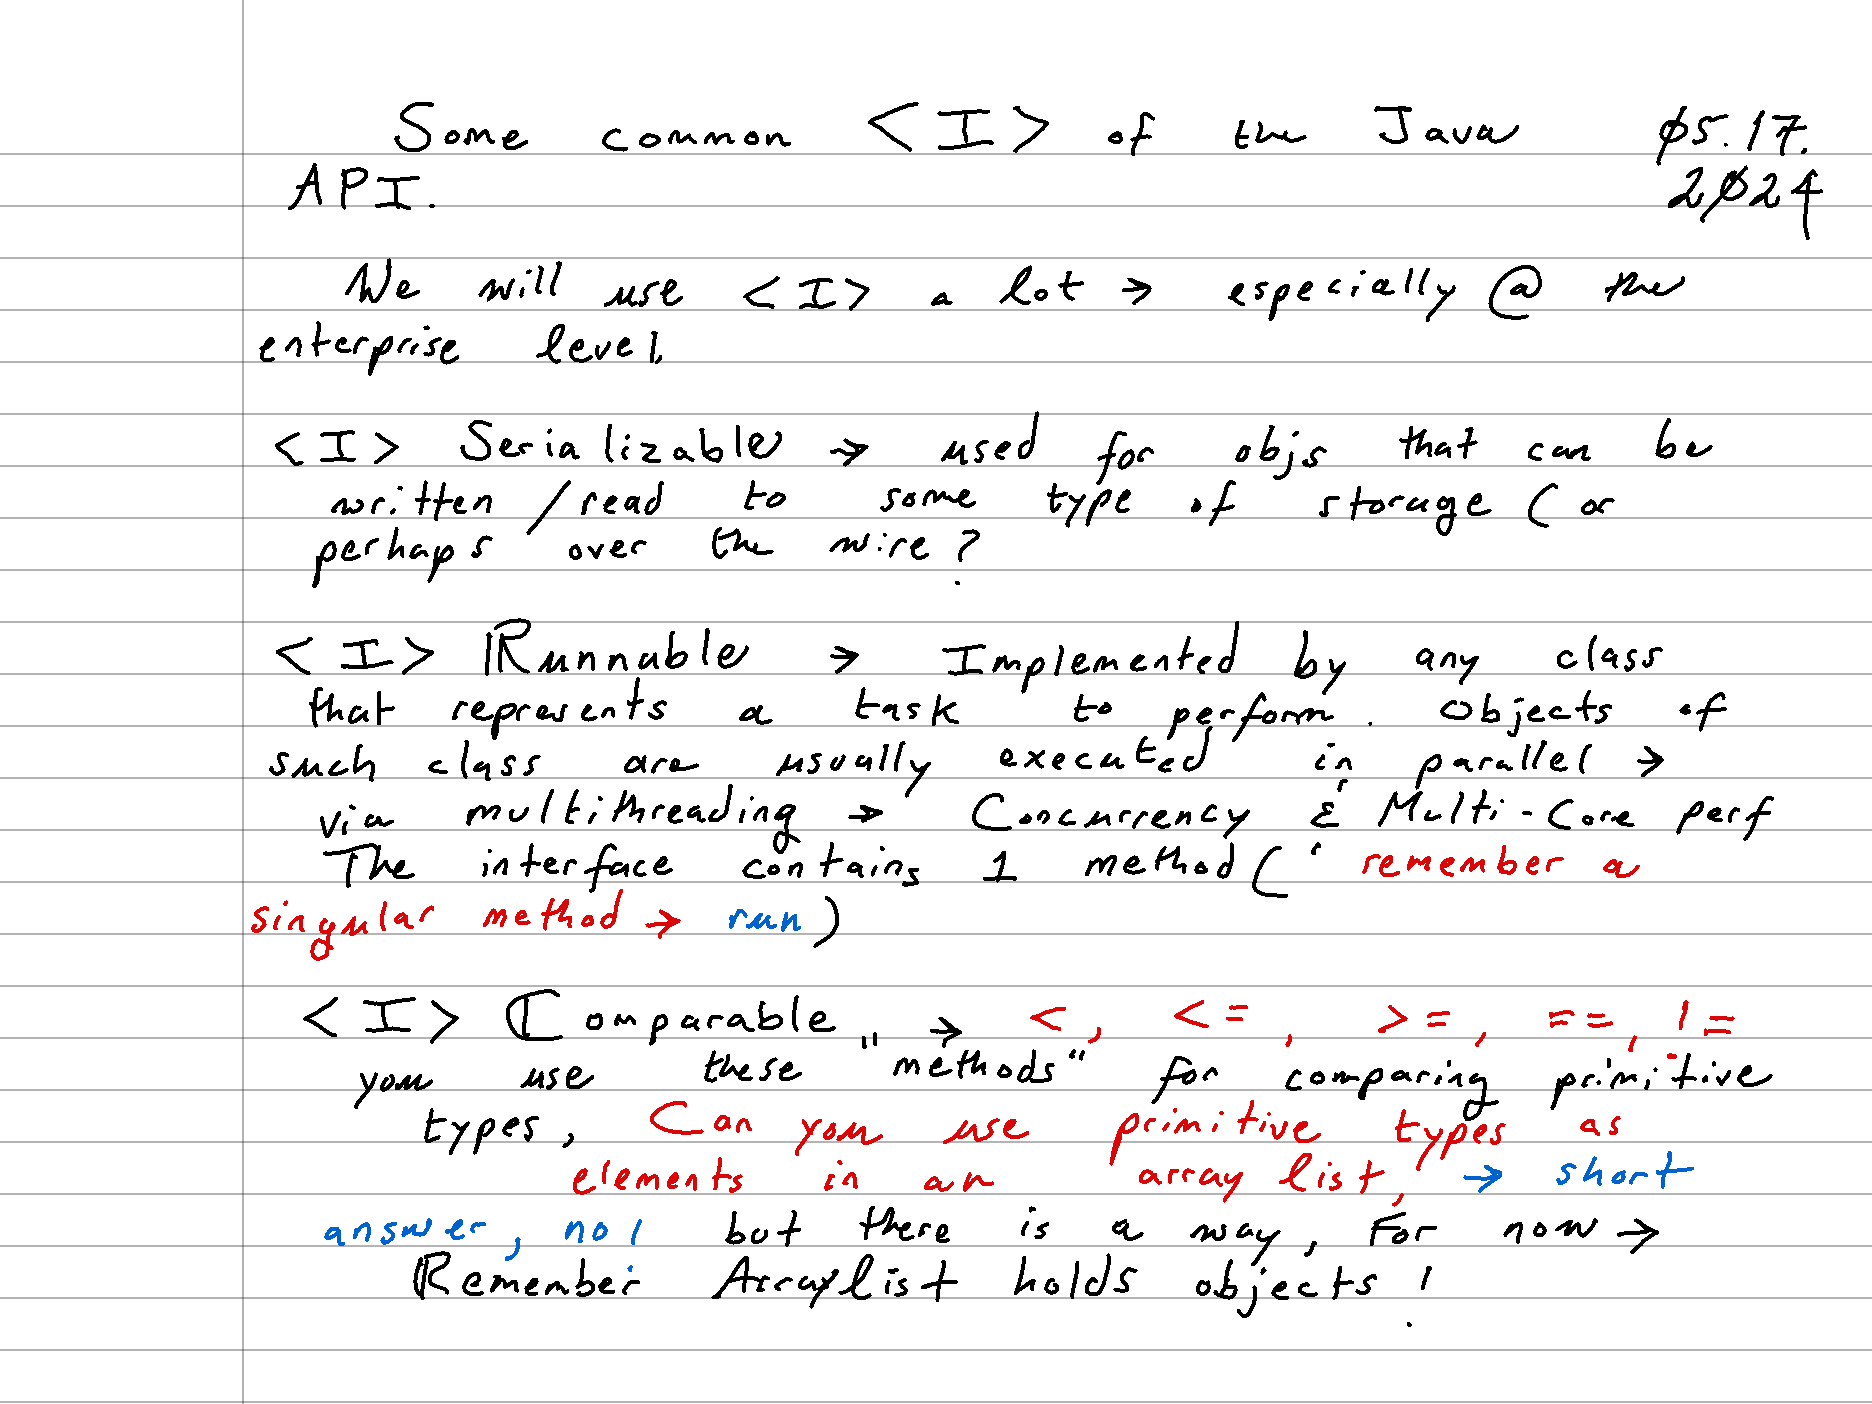 Some common <I> of the Java 05.17.
API. 2024
We will use <I> a lot → especially @ the
enterprise level.
<I> Serializable → used for objs that can be
written / read to some type of storage ( or
perhaps over the wire?
<I> Runnable → Implemented by any class
that represents a task to perform. Objects of
such class are usually executed in parallel →
via multithreading → Concurrency & Multi-Core perf
The interface contains 1 method ( ' remember a
singular method → run )
<I> Comparable → <, <=, >=, ==, !=
you use these "methods" for comparing primitive
types, Can you use primitive types as
elements in an array list, → short
answer, no! but there is a way, For now →
Remember Arraylist holds objects!